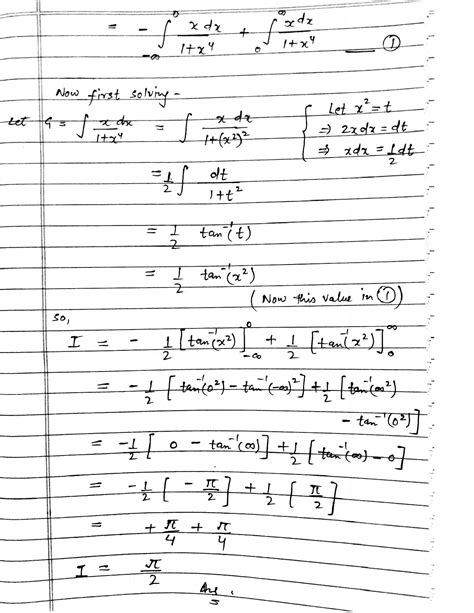 = - ∫_{-∞}^{0} x dx / 1+x⁴ + ∫_{0}^{∞} x dx / 1+x⁴ — ①
Now first solving -
Let G = ∫ x dx / 1+x⁴ = ∫ x dx / 1+(x²)² { Let x² = t
⇒ 2x dx = dt
⇒ x dx = 1/2 dt
= 1/2 ∫ dt / 1+t²
= 1/2 tan⁻¹(t)
= 1/2 tan⁻¹(x²)
(Now this value in ①)
so,
I = - 1/2 [tan⁻¹(x²)]_{-∞}^{0} + 1/2 [tan⁻¹(x²)]_{0}^{∞}
= - 1/2 [tan⁻¹(0²) - tan⁻¹(-∞)²] + 1/2 [tan⁻¹(∞²)
- tan⁻¹(0²)]
= - 1/2 [0 - tan⁻¹(∞)] + 1/2 [tan⁻¹(∞) - 0]
= - 1/2 [- π/2] + 1/2 [π/2]
= + π/4 + π/4
I = π/2
Ans.